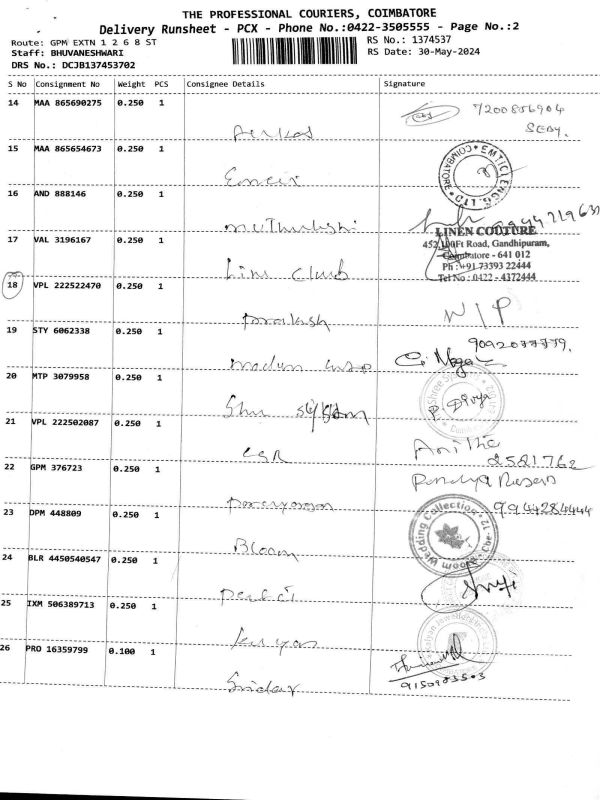 THE PROFESSIONAL COURIERS, COIMBATORE
Delivery Runsheet - PCX - Phone No.:0422-3505555 - Page No.:2
Route: GPM EXTN 1 2 6 8 ST
Staff: BHUVANESHWARI
DRS No.: DCJB137453702
RS No.: 1374537
RS Date: 30-May-2024
S No Consignment No Weight PCS Consignee Details Signature
14 MAA 865690275 0.250 1
7200856904
SEBY.
15 MAA 865654673 0.250 1
COIMBATORE
16 AND 888146 0.250 1
LINEN COUTURE
17 VAL 3196167 0.250 1 Linu Club
452, 100Ft Road, Gandhipuram,
Coimbatore - 641 012
Ph : +91 73393 22444
Tel No : 0422 - 4372444
18 VPL 222522470 0.250 1 prakash
N/P
19 STY 6062338 0.250 1
9092077779.
20 MTP 3079958 0.250 1
P. Divya
21 VPL 222502087 0.250 1 CGR
Anitha
2581762
22 GPM 376723 0.250 1
9944284444
23 DPM 448809 0.250 1 Bloom
Wedding Collection
24 BLR 4450540547 0.250 1
25 IXM 506389713 0.250 1
26 PRO 16359799 0.100 1 Sridar
9150983503